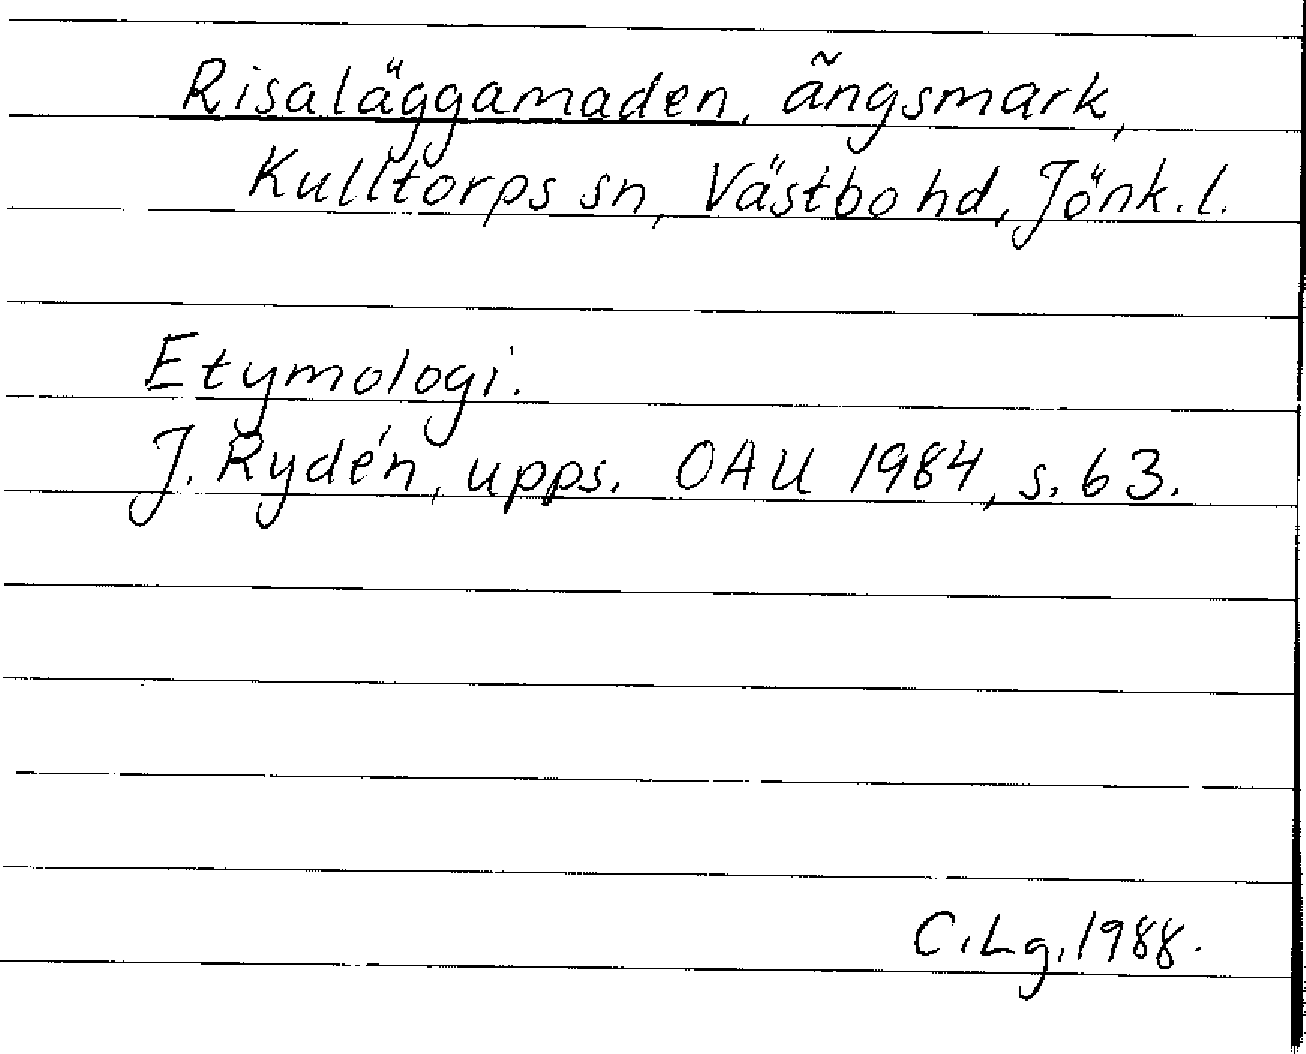 Risaläggamaden, ängsmark,
Kulltorps sn, Västbo hd, Jönk. l.
Etymologi.
J. Rydén, upps. OAU 1984, s. 63.
C. Lg. 1988.